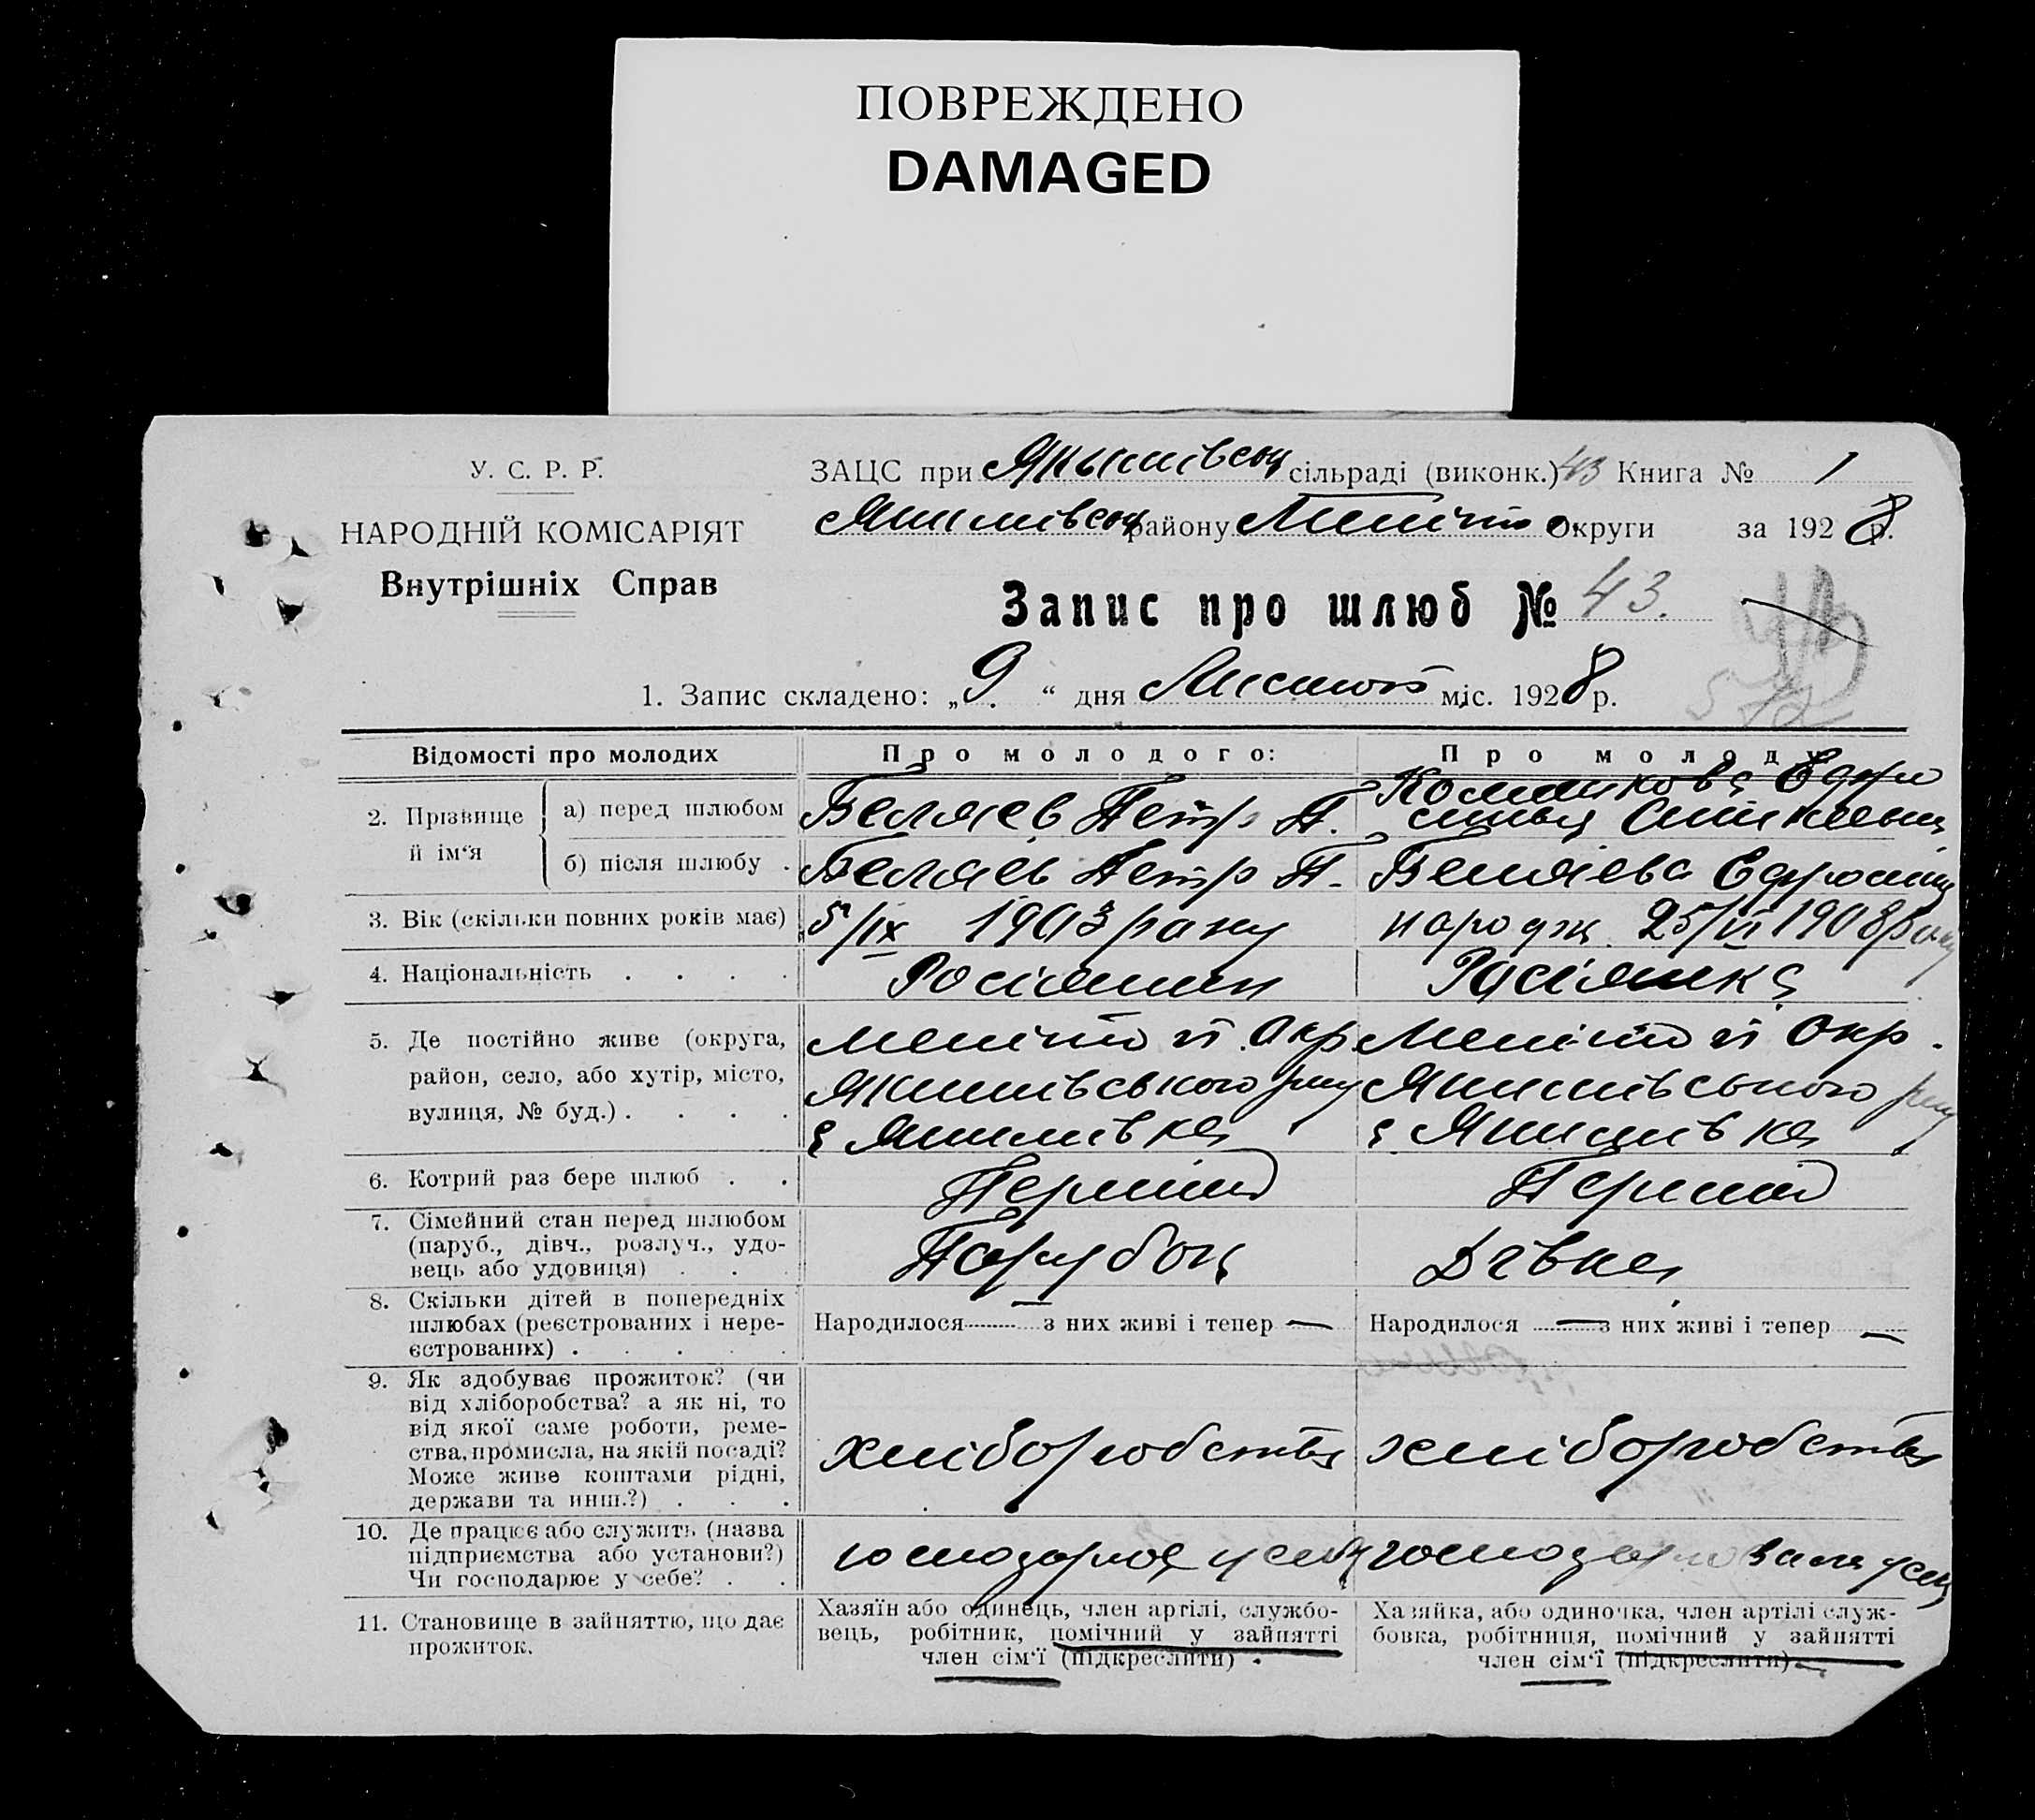 ПОВРЕЖДЕНО
DAMAGED
У. С. Р. Р.
НАРОДНІЙ КОМІСАРІЯТ
Внутрішніх Справ
ЗАЦС при сільраді (виконк.) 43 Книга № 1
району Округи за 1928 р.
Запис про шлюб № 43.
1. Запис складено: „9“ дня міс. 1928 р.
Відомості про молодих
Про молодого:
Про молоду
2. Прізвище й ім‘я
а) перед шлюбом
Беляев Петр П.
б) після шлюбу .
Беляев Петр П.
Беляєва
3. Вік (скільки повних років має)
5/IX 1903 року
народж. 25/VI 1908 року
4. Національність . . . .
Росіянин
Росіянка
5. Де постійно живе (округа,
район, село, або хутір, місто,
вулиця, № буд.) . . . .
Меліто й Окр
Якимівського р-ну
с Якимівка
Меліто й Окр.
Якимівського р-ну
с Якимівка
6. Котрий раз бере шлюб . .
Перший
Перший
7. Сімейний стан перед шлюбом
(паруб., дівч., розлуч., удо-
вець або удовиця) . .
Парубок
Дівка
8. Скільки дітей в попередніх
шлюбах (реєстрованих і нере-
єстрованих) . . . . .
Народилося з них живі і тепер —
Народилося — з них живі і тепер —
9. Як здобуває прожиток? (чи
від хліборобства? а як ні, то
від якої саме роботи, реме-
ства, промисла, на якій посаді?
Може живе коштами рідні,
держави та инш.?) . . .
хліборобства
хліборобства
10. Де працює або служить (назва
підприємства або установи?)
Чи господарює у себе? . .
11. Становище в зайняттю, що дає
прожиток.
Хазяїн або одинець, член артілі, службо-
вець, робітник, помічний у зайнятті
член сім‘ї (підкреслити) .
Хазяйка, або одиночка, член артілі служ-
бовка, робітниця, помічний у зайнятті
член сім‘ї (підкреслити)